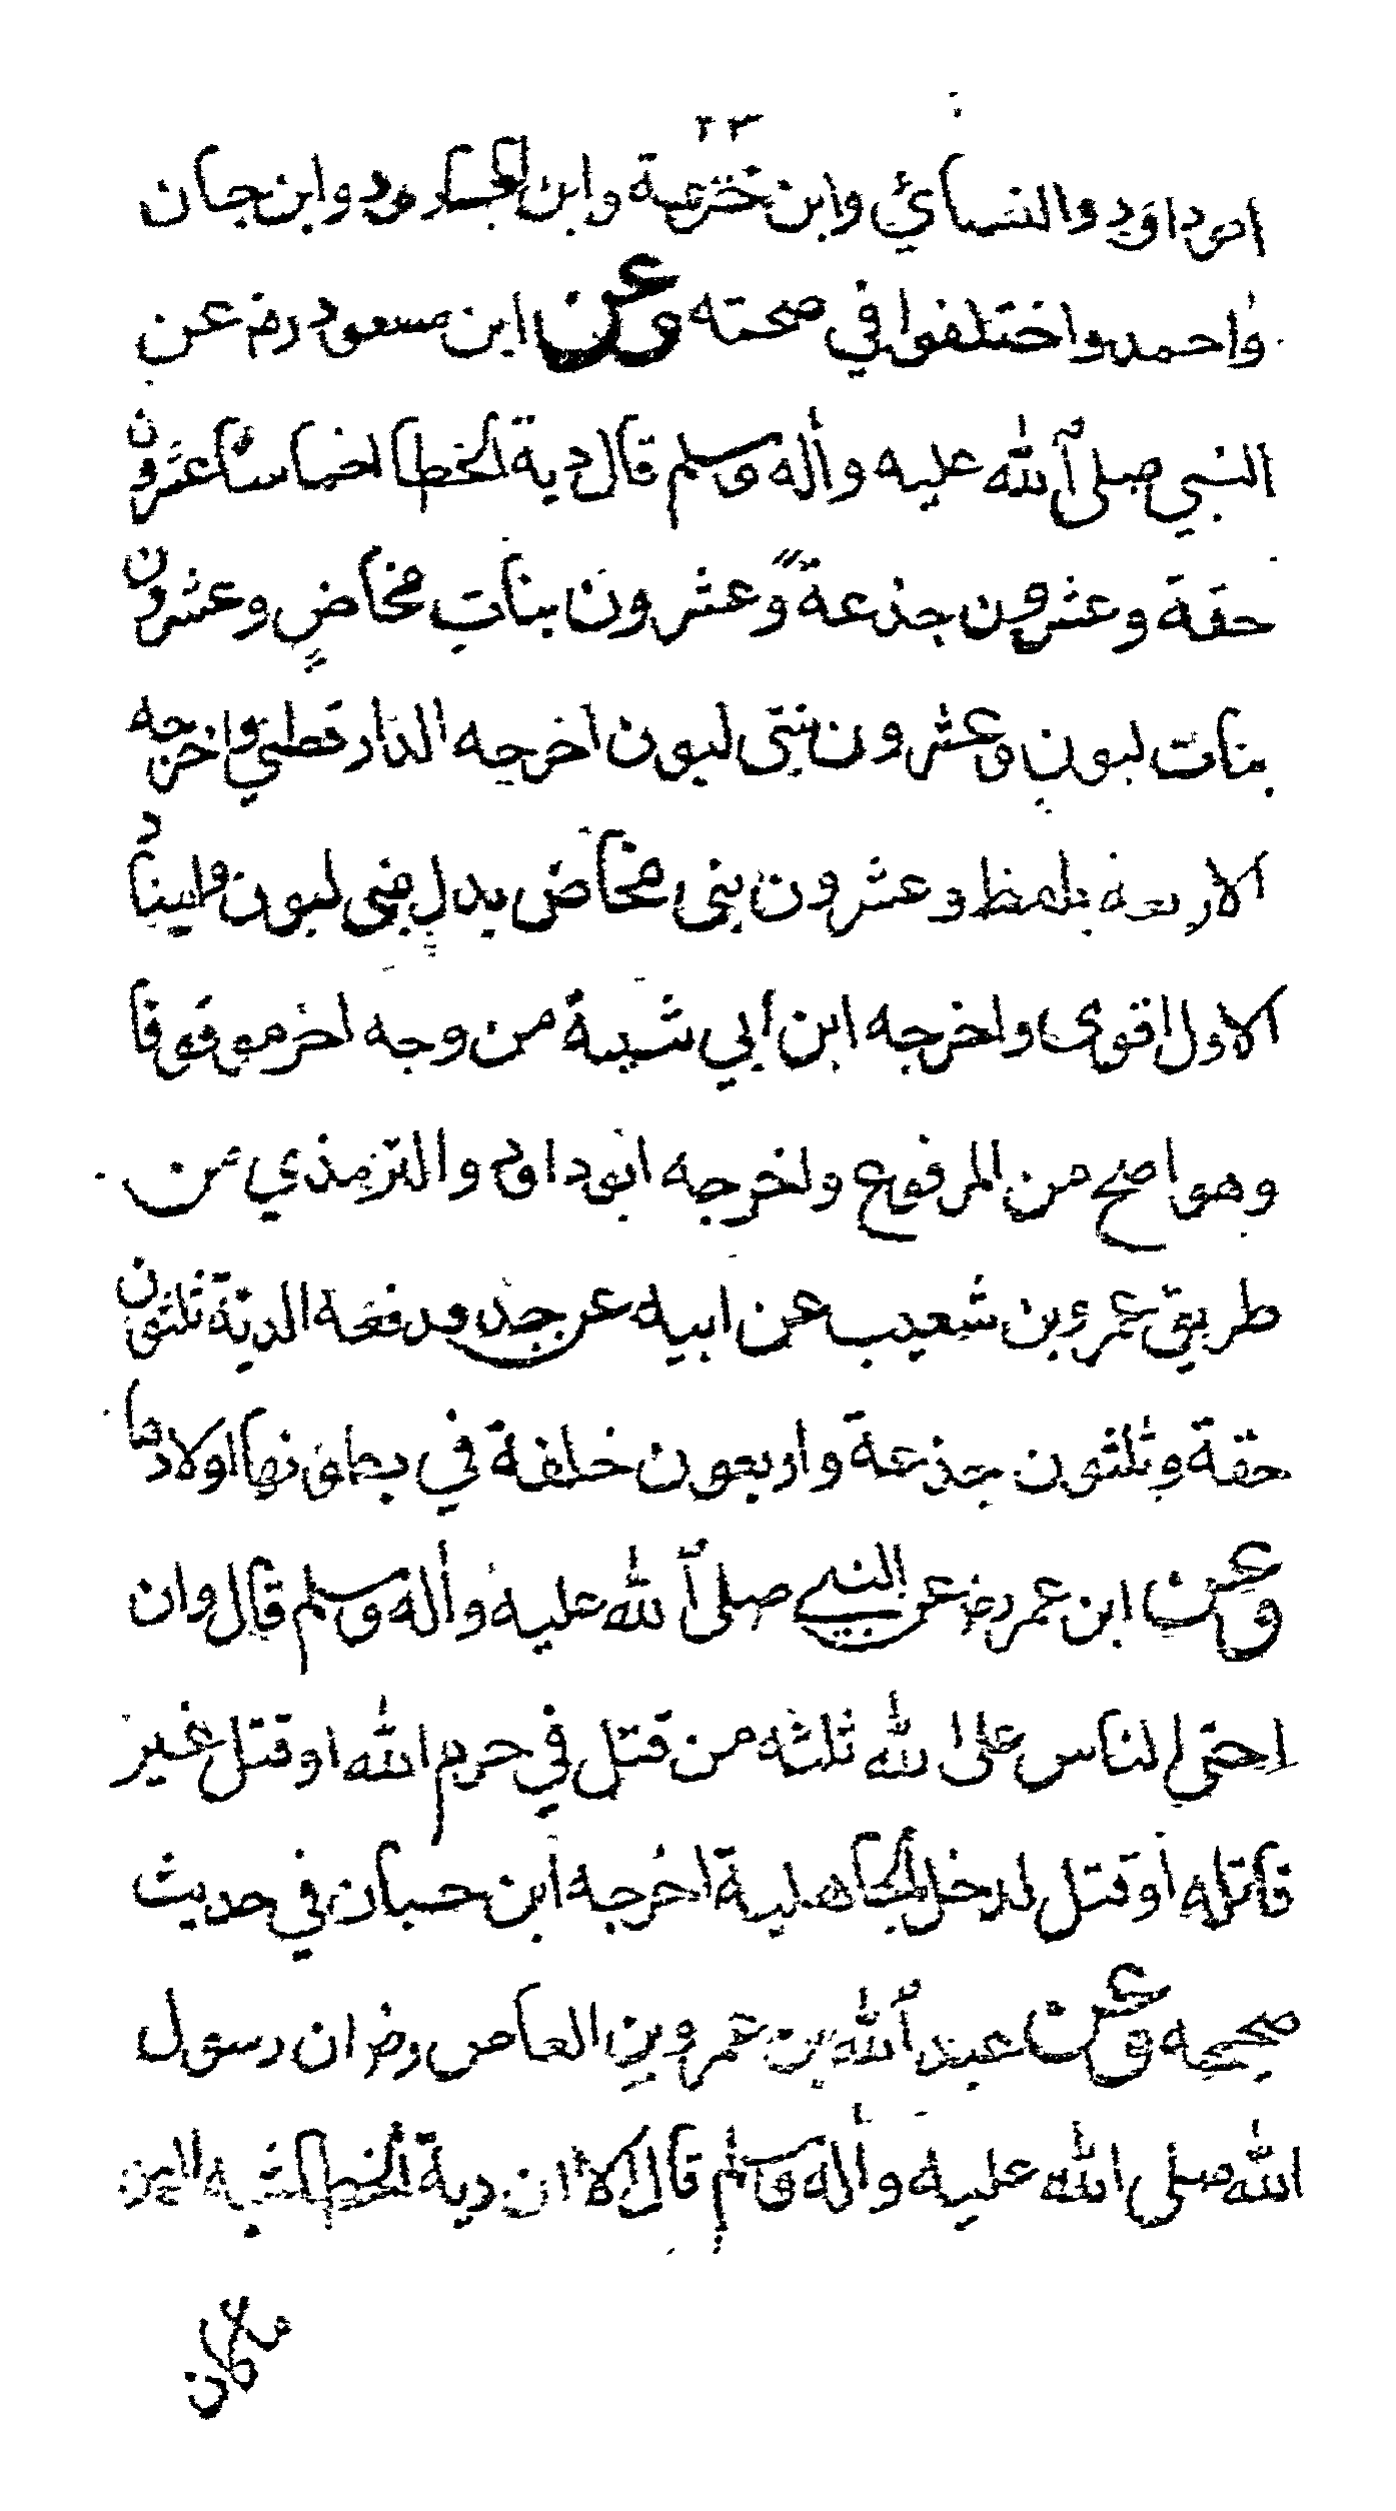 ابوداود والنسائي وابن خزيمة وابن الجارود وابن حبان
واحمد واختلفوا في صحته وعن ابن مسعود رض عن
النبي صلى الله عليه وأله وسلم قال دية الخطا اخماسا عشرون
حقة وعشرون جذعة وعشرون بنات مخاض وعشرون
بنات لبون وعشرون بني لبون اخرجه الدار قطني واخرجه
الاربعة بلفظ وعشرون بني مخاض بدل بني لبون واسناد
الاول اقوى واخرجه ابن ابي شيبة من وجه اخر موقوفا
وهو اصح من المرفوع واخرجه ابوداود والترمذي من
طريق عمرو بن شعيب عن ابيه عن جده رفعه الدية ثلثون
حقة وثلثون جذعة واربعون خلفة في بطونها اولادها
وعن ابن عمر رض عن النبي صلى الله عليه وأله وسلم قال وان
اعتى الناس على الله ثلثه من قتل في حرم الله او قتل غير
قاتله او قتل لدخل الجاهلية اخرجه ابن حبان في حديث
صححه وعن عبد الله بن عمرو بن العاص رض ان رسول
الله صلى الله عليه وأله وسلم قال الا ان دية الخطا شبه
ما كان